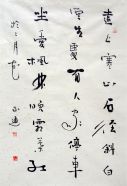 遠上寒山石径斜白
雲生處有人家停車
坐愛楓林晚霜葉紅
於二月花